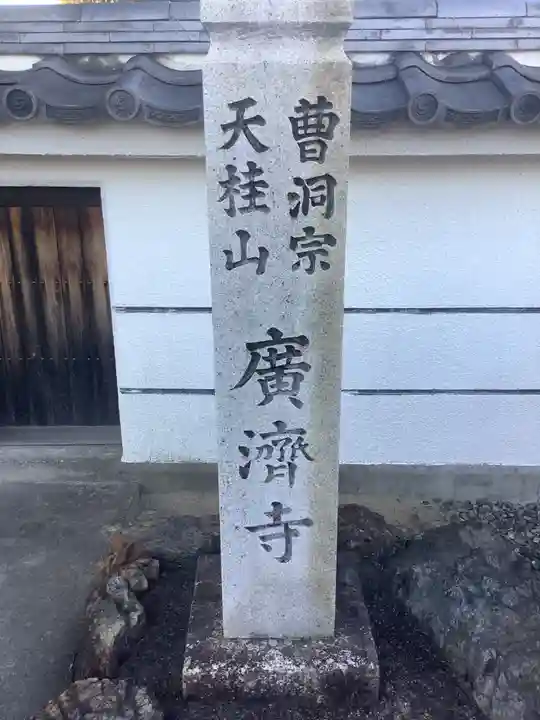 曹洞宗
天桂山
廣濟寺